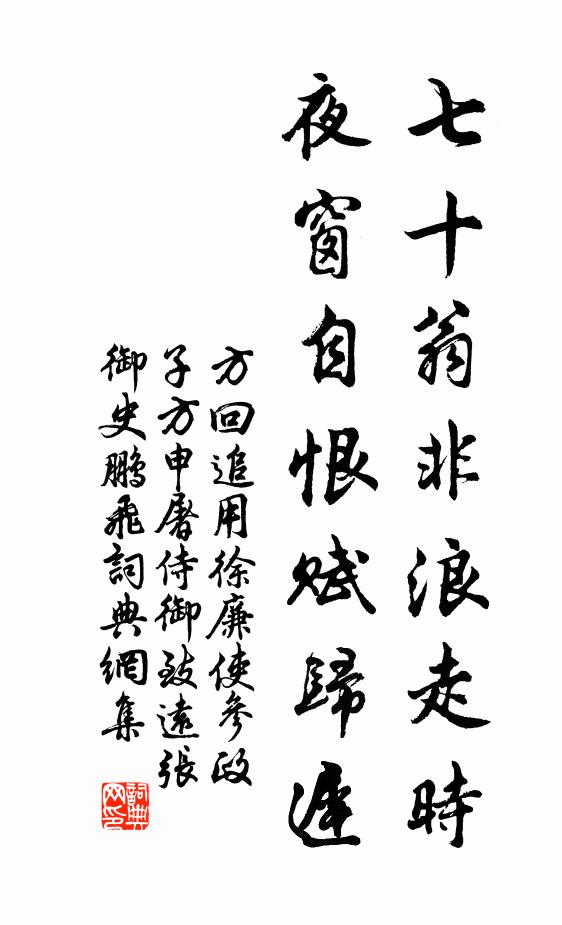 七十翁非浪走時
夜窗自恨賦歸遲
方回追用徐廉使參政
子方申屠侍御致遠張
御史鵬飛詞典網集
詞典网印